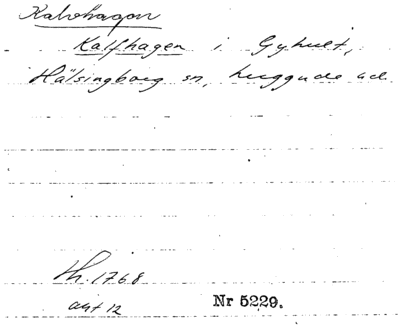 Kalvhagen
Kalfhagen i Gyhult,
Hälsingborg sn, Luggude hd
Th. 1768
akt 12
Nr 5229.